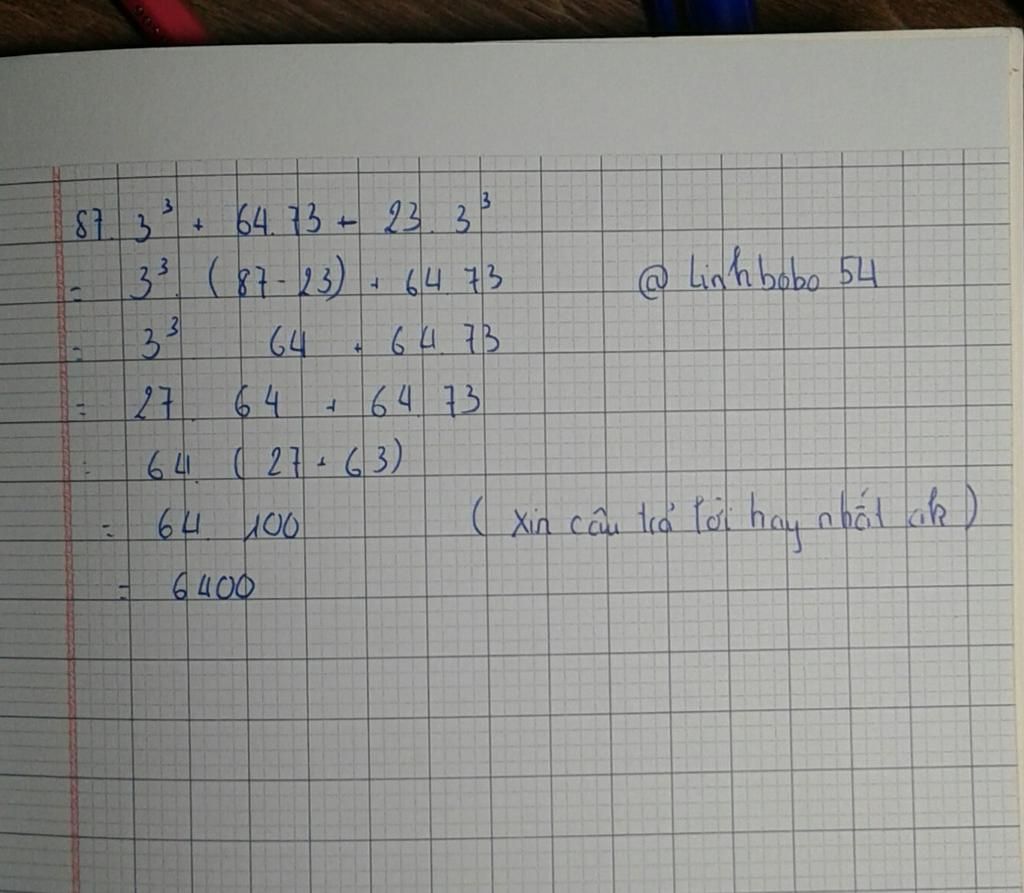 87. 3³ + 64.73 - 23. 3³
= 3³. (87-23) + 64.73 @ Linhbobo 54
= 3³ 64 + 64.73
= 27. 64 + 64.73
= 64. (27+63)
= 64. 100 (xin câu trả lời hay nhất ak)
= 6400